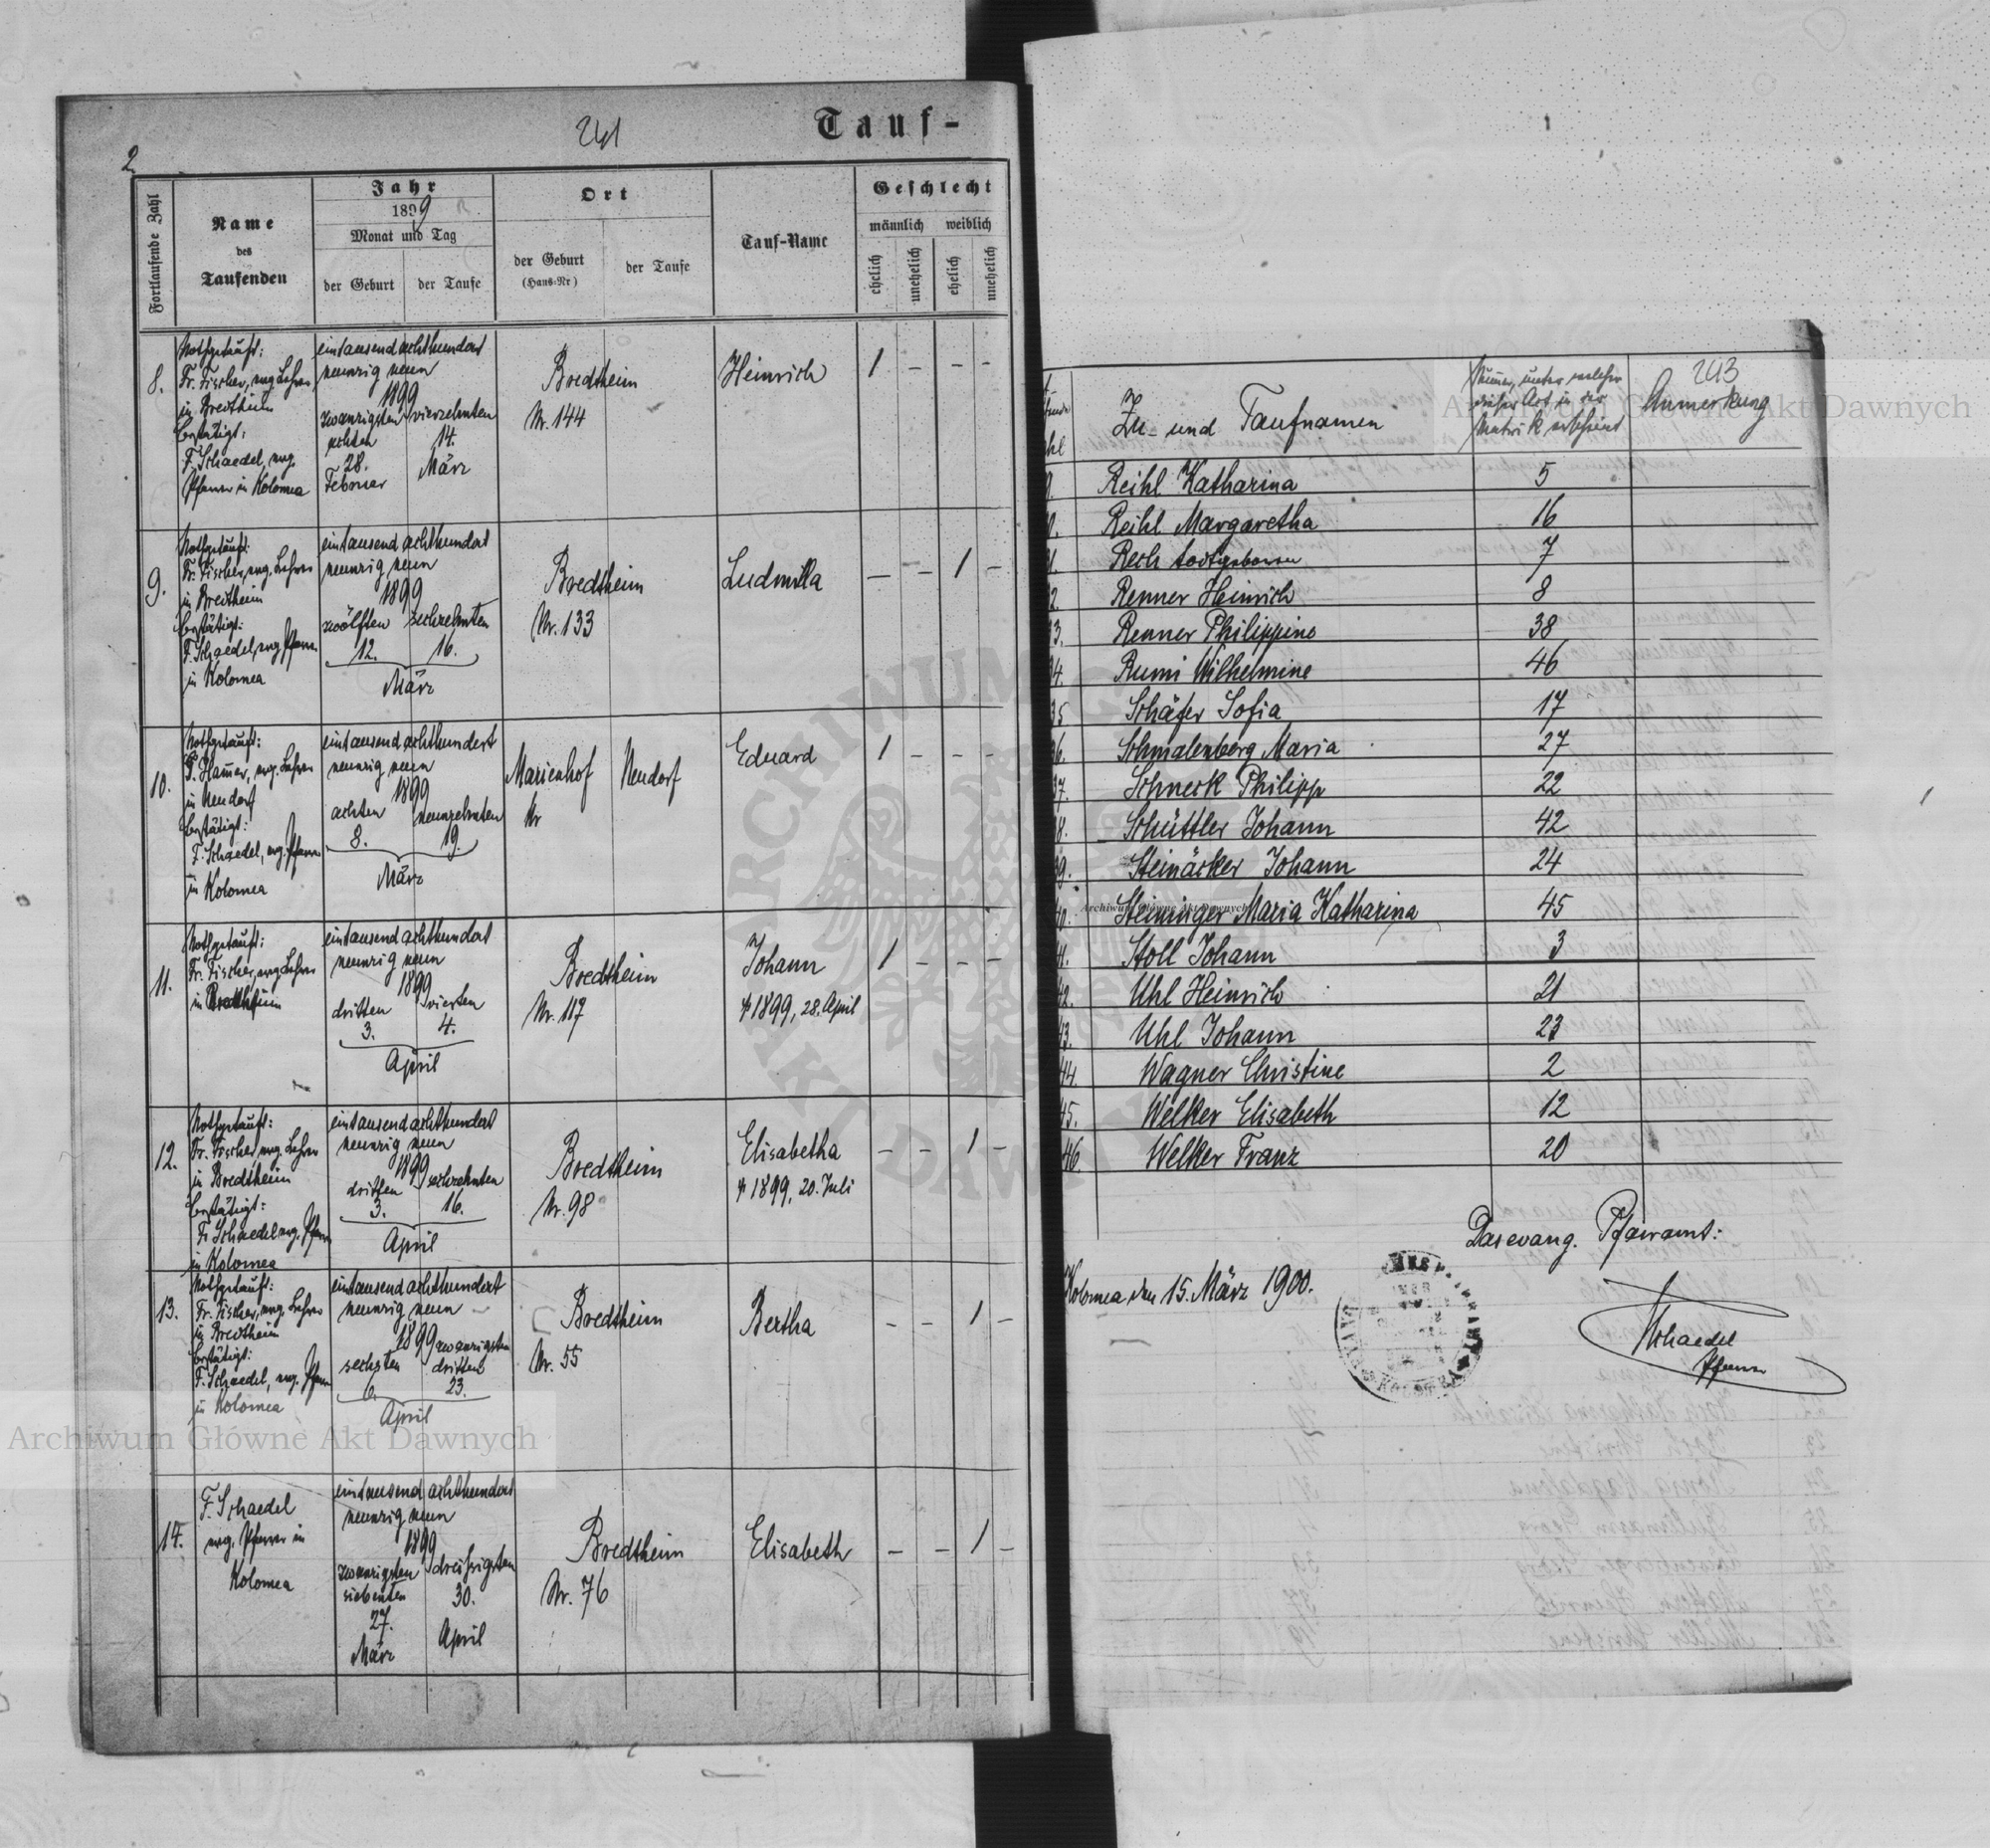 2
241
Tauf-
Fortlaufende Zahl
Name
des
Taufenden
Jahr
1899
Monat und Tag
der Geburt
der Taufe
Ort
der Geburt
(Haus-Nr)
der Taufe
Tauf-Name
Geschlecht
männlich
weiblich
ehelich
unehelich
ehelich
unehelich
8.
Nothgetauft:
Fr. Fischer, evg. Lehrer
in Bredtheim
bestätigt:
F. Schaedel, evg.
Pfarrer in Kolomea
eintausend achthundert
neunzig neun
1899
zwanzigsten vierzehnten
achten 14.
28. März
Februar
Bredtheim
Nr. 144
Heinrich
1 - - -
9.
Nothgetauft:
Fr. Fischer, evg. Lehrer
in Bredtheim
bestätigt:
F. Schaedel, evg. Pfarrer
in Kolomea
eintausend achthundert
neunzig neun
1899
zwölften sechzehnten
12. 16.
März
Bredtheim
Nr. 133
Ludmilla
- - 1 -
10.
Nothgetauft:
P. Hamer, evg. Lehrer
in Neudorf
bestätigt:
F. Schaedel, evg. Pfarrer
in Kolomea
eintausend achthundert
neunzig neun
1899
achten neunzehnten
8. 19.
März
Marienhof
Nr
Neudorf
Eduard
1 - - -
11.
Nothgetauft:
Fr. Fischer, evg. Lehrer
in Bredtheim
eintausend achthundert
neunzig neun
1899
dritten vierten
3. 4.
April
Bredtheim
Nr. 117
Johann
† 1899, 28. April
1 - - -
12.
Nothgetauft:
Fr. Fischer, evg. Lehrer
in Bredtheim
bestätigt:
F. Schaedel evg. Pfarrer
in Kolomea
eintausend achthundert
neunzig neun
1899
dritten sechzehnten
3. 16.
April
Bredtheim
Nr. 98
Elisabetha
† 1899, 20. Juli
- - 1 -
13.
Nothgetauft:
Fr. Fischer, evg. Lehrer
in Bredtheim
bestätigt:
F. Schaedel, evg. Pfarrer
in Kolomea
eintausend achthundert
neunzig neun
1899 zwanzigsten
sechsten dritten
6. 23.
April
Bredtheim
Nr. 55
Bertha
- - 1 -
14.
F. Schaedel
evg. Pfarrer in
Kolomea
eintausend achthundert
neunzig neun
1899
zwanzigsten dreißigsten
siebenten 30.
27. April
März
Bredtheim
Nr. 76
Elisabeth
- - 1 -
243
Zu- und Taufnamen
Nummer, unter welcher
dieser Act in der
Matrik erscheint
Anmerkung
Reihl Katharina 5
Reihl Margaretha 16
Rech todtgeboren 7
Renner Heinrich 8
3. Renner Philippine 38
4. Rumi Wilhelmine 46
35 Schäfer Sofia 17
6. Schmalenberg Maria 27
7. Schneck Philipp 22
8. Schüttler Johann 42
9. Steinäcker Johann 24
Steininger Maria Katharina 45
Stoll Johann 3
42. Uhl Heinrich 21
43. Uhl Johann 23
44. Wagner Christine 2
45. Welker Elisabeth 12
46. Welker Franz 20
Das evang. Pfarramt:
Kolomea den 15. März 1900.
FSchaedel
Pfarrer
Archiwum Główne Akt Dawnych
Archiwum Główne Akt Dawnych
Archiwum Główne Akt Dawnych
ARCHIWUM
AKT DAWNYCH